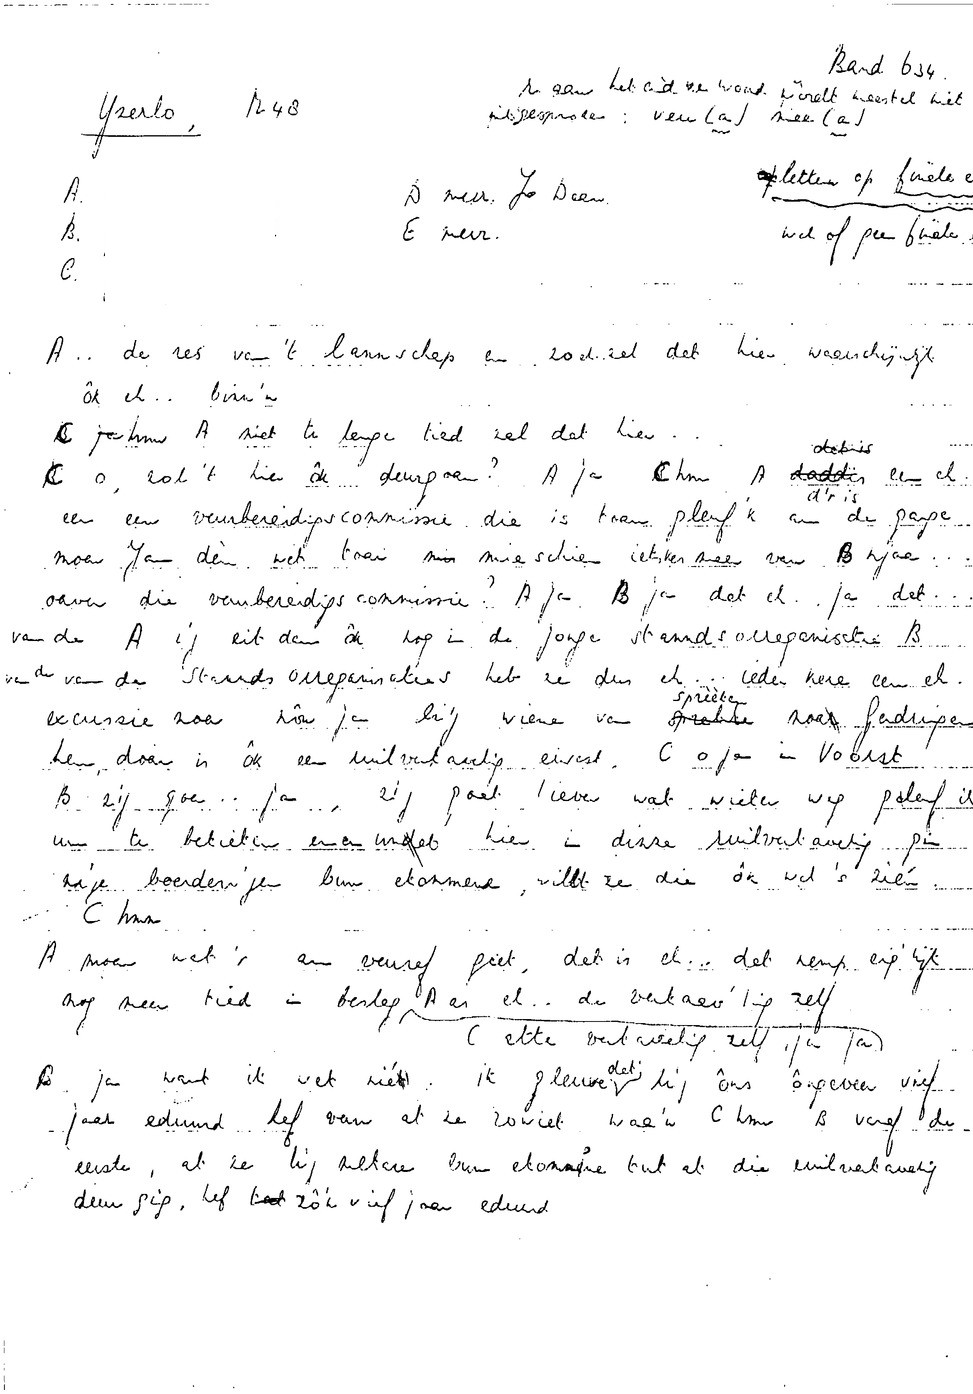 Band 634.
Yzerlo, M48
R aan het eind v.e. woord wordt meestal niet
uitgesproken : veu (a) mee (a)
A. D mevr. Jo Daen. letten op finele
B. E mevr. wel of geen finele
C.
A .. de res van 't lannschap en zod. zel det hier waerschijnlijk
ôk eh.. binn'n
C hmm A niet te lenge tied zel det hier . . .
C o, zol 't hier ôk deurgoan? A ja C hm A d'r is een eh.
een een veurbereidigscommissie die is toen gleuf 'k an de gange
moar Jan dèn wet toar misschien iets meer van B njae . . .
oaver die veurbereidigscommissie? A ja B ja dat eh.. ja dat...
van de A ij zit dan ôk nog in de jonge stannds orreganisatie B
van de stannds orreganisaties heb ze dus eh... ieder kere een eh.
excursie noar nôw ja bij wiene van sprèèken noar Gendringen
hen, doar is ôk een ruilverkavelig ewest. C o ja in Voorst
B zij goa .. ja , zij goat liever wat wieter weg gleuf ik
um te bekieken en an hier in disse ruilverkavelig
nije boerderi'jen bun ekommene, wilt ze die ôk wel 's zien.
C hmm
A moar wat 'r an veuraf geet, det is eh... det nemp eig'lijk
nog meer tied in beslag A as eh.. de verkaev'lig zelf
(C atte verkavelig zelf, ja ja)
B ja want ik wet niet. ik gleuve det bij ôns ôngeveer vief
jaar eduurd hef veur at ze zowiet waer'n C hmm B vanaf de
eerste, at ze bij mekare bun ekommene tut at die ruilverkavelig
deur ging, hef zô'n vief jaar eduurd